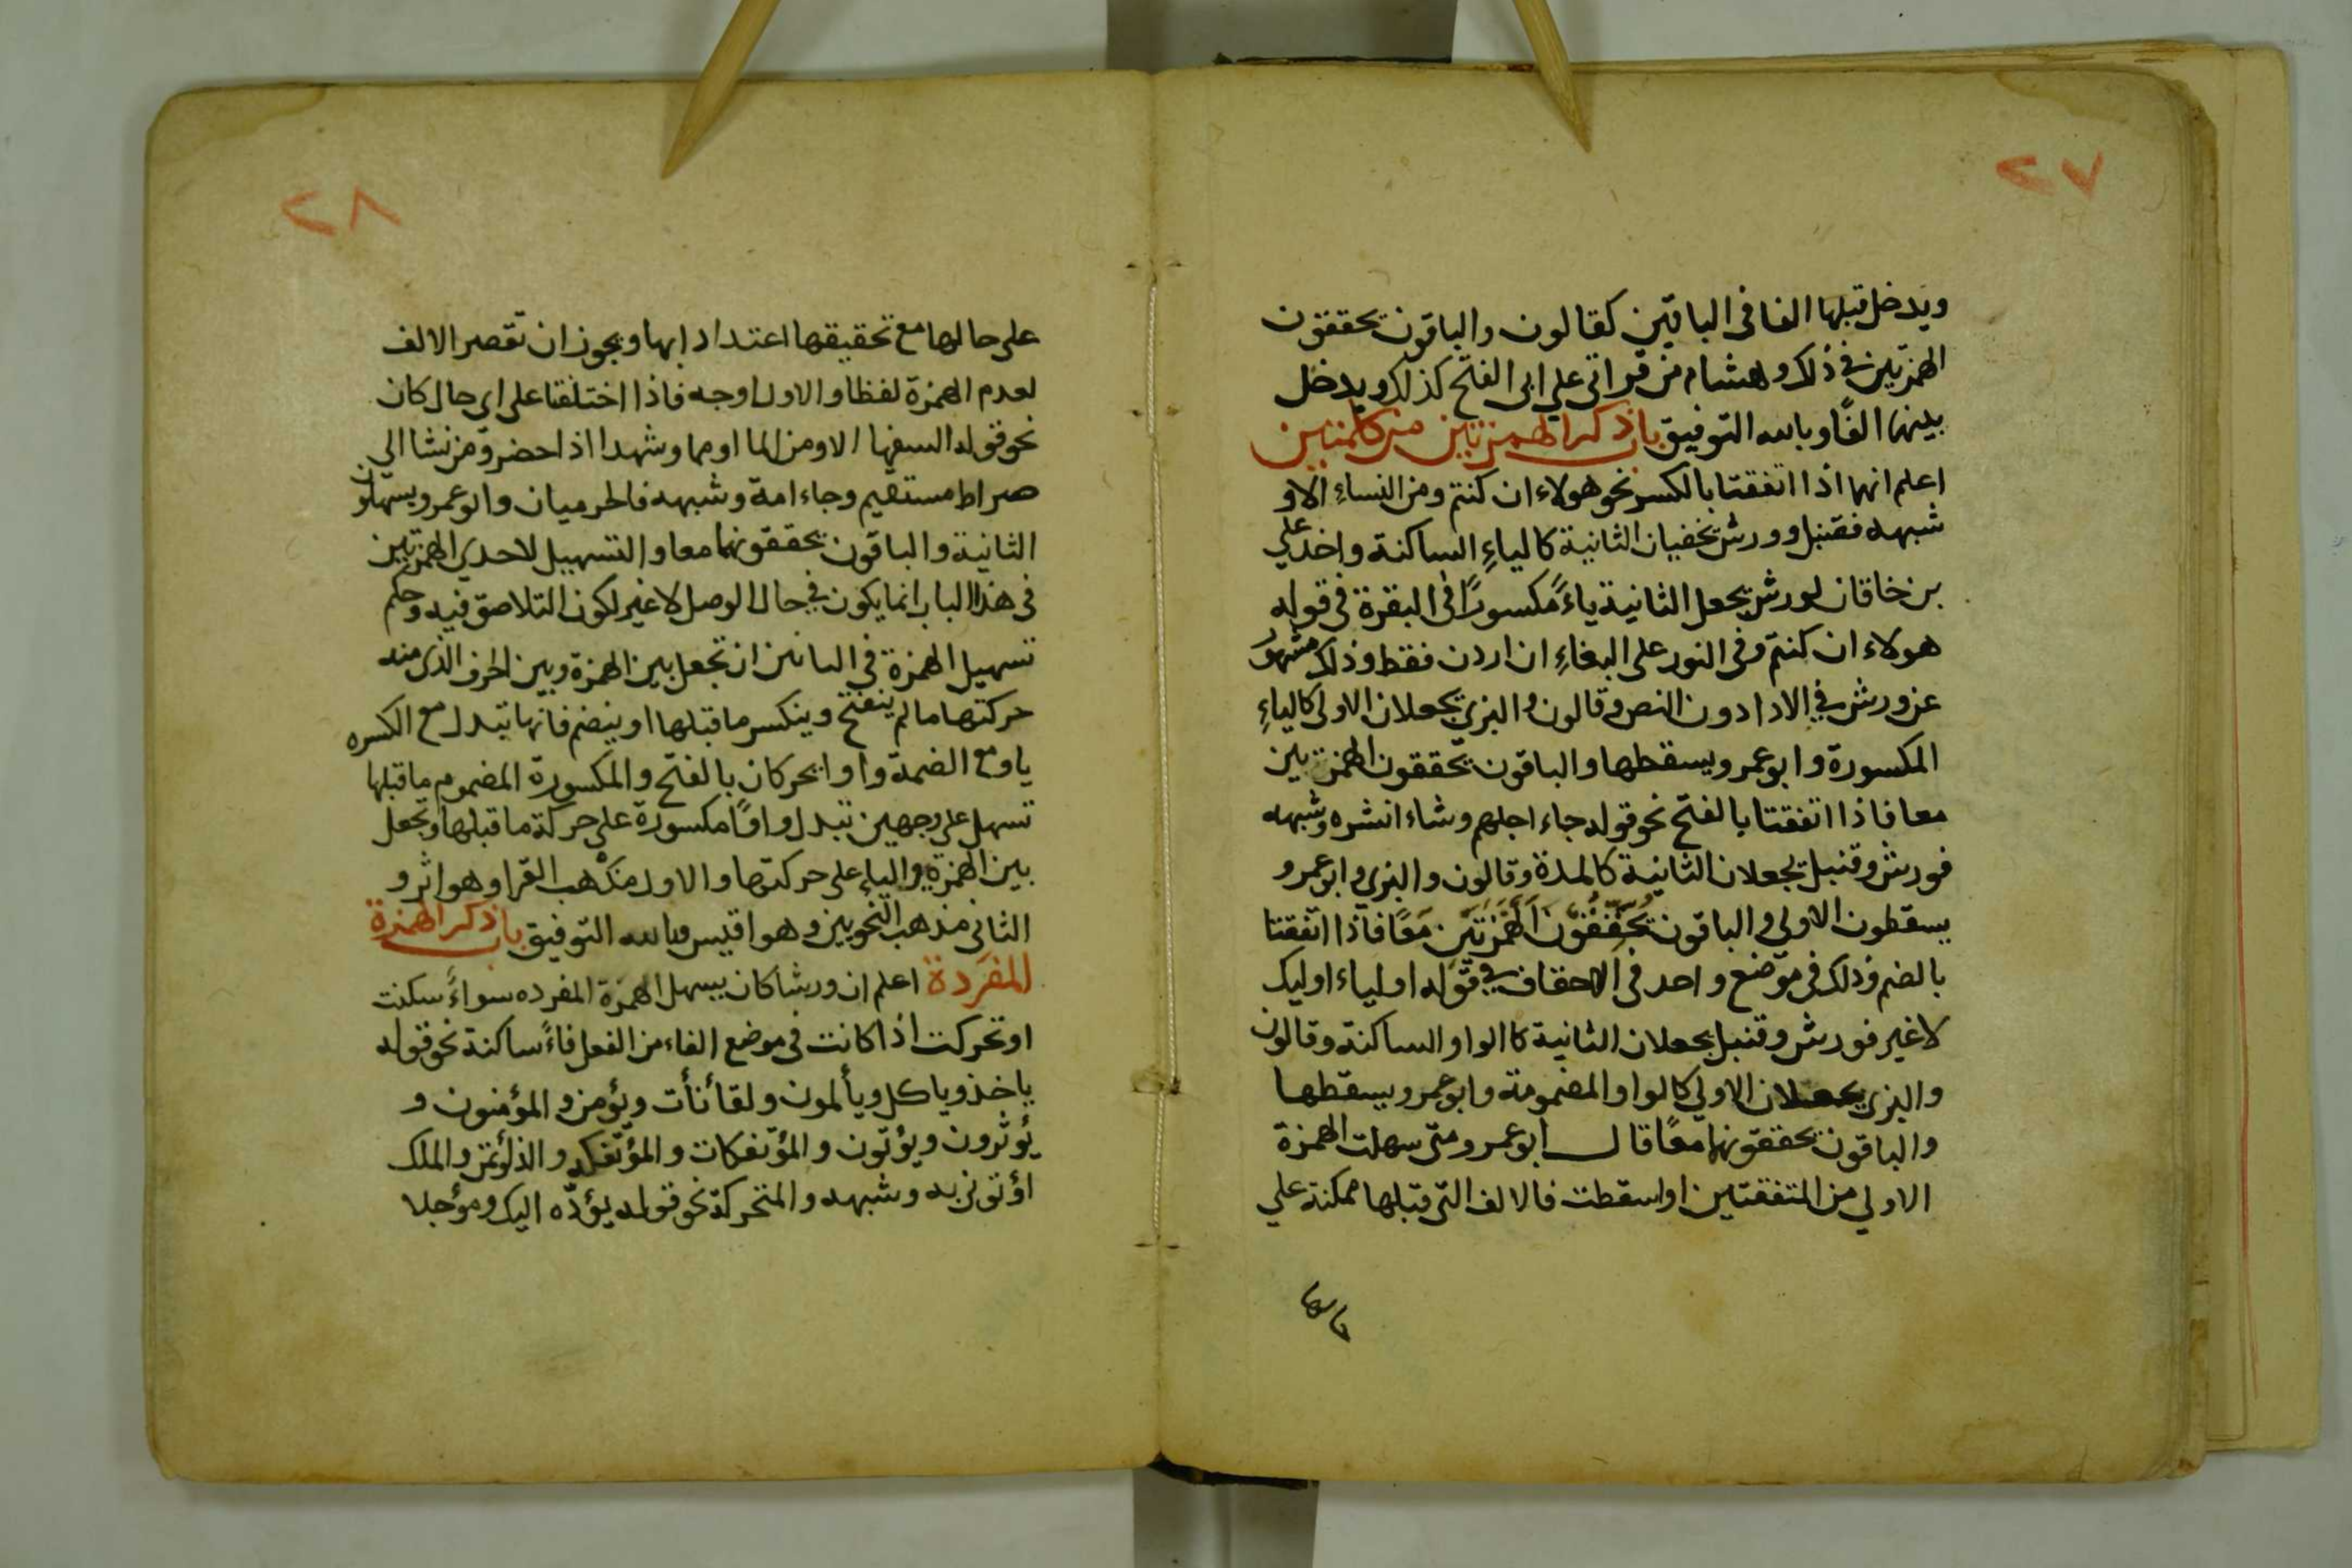 ٢٧
ويدخل قبلها الفا في الباقين كقالون والباقون يحققون
الهمزتين في ذلك وهشام من قراتي علي ابي الفتح كذلك ويدخل
بينهما الفًا وبالله التوفيق باب ذكر الهمزتين من كلمتين
اعلم انهما اذا اتفقتا بالكسر نحو هولاء ان كنتم ومن النساءِ الا و
شبهه فقنبل وورش يخفيان الثانية كالياءِ الساكنة واخذ علي
بن خاقان لورش بجعل الثانية ياءً مكسورًا في البقرة في قوله
هولاء ان كنتم وفي النور على البغاءِ ان اردن فقط وذلك مشهور
عن ورش في الادا دون النص وقالون والبزي يجعلان الاولى كالياءِ
المكسورة وابو عمرو يسقطها والباقون يحققون الهمزتين
معا فاذا اتفقتا بالفتح نحو قوله جاء اجلهم وشاء انشره وشبهه
فورش وقنبل يجعلان الثانية كالمدة وقالون والبزي وابو عمرو
يسقطون الاولي والباقون يُحَقِّقُوْنَ الهَمْزَتَيْن مَعًا فاذا اتفقتا
بالضم وذلك في موضع واحد في الاحقاف في قوله اولياء اوليك
لا غير فورش وقنبل يجعلان الثانية كالواو الساكنة وقالون
والبزي يجعلان الاولي كالواو المضمومة وابو عمرو يسقطها
والباقون يحققونهما معًا قال ابو عمرو ومتى سهلت الهمزة
الاولي من المتفقتين او اسقطت فالالف التي قبلها ممكنة علي
٢٨
على حالها مع تحقيقها اعتدادا بها ويجوز ان تقصر الالف
لعدم الهمزة لفظا والاول اوجه فاذا اختلفتا على اي حال كان
نحو قوله السفها الا ومن الما او مما وشهدا اذ احضر ومن نشا الي
صراط مستقيم وجاء امة وشبهه فالحرميان وابو عمرو يسهلون
الثانية والباقون يحققونهما معا والتسهيل لاحدي الهمزتين
في هذا الباب انما يكون في حال الوصل لا غير لكون التلاصق فيه وحكم
تسهيل الهمزة في البابين ان تجعل بين الهمزة وبين الحرف الذي منه
حركتها ما لم ينفتح وينكسر ما قبلها او ينضم فانها تبدل مع الكسره
يا ومع الضمة واوا يحركان بالفتح والمكسورة المضموم ما قبلها
تسهل على وجهين تبدل واوًا مكسورة على حركة ما قبلها وتجعل
بين الهمزة والياءِ على حركتها والاول مذهب القرا وهو اثر و
الثاني مذهب النحويين وهو اقيس وبالله التوفيق باب ذكر الهمزة
المفردة اعلم ان ورشا كان يسهل الهمزة المفرده سواءً سكنت
او تحركت اذا كانت في موضع الفاء من الفعل فاءً ساكنة نحو قوله
ياخذ وياكل ويألمون ولقاءنأت ويؤمن والمؤمنون و
يؤثرون ويؤتون والمؤتفكات والمؤتفكه والذي اؤتمن والملك
اؤتوني به وشبهه والمتحركة نحو قوله يؤدّه اليك ومؤجلا